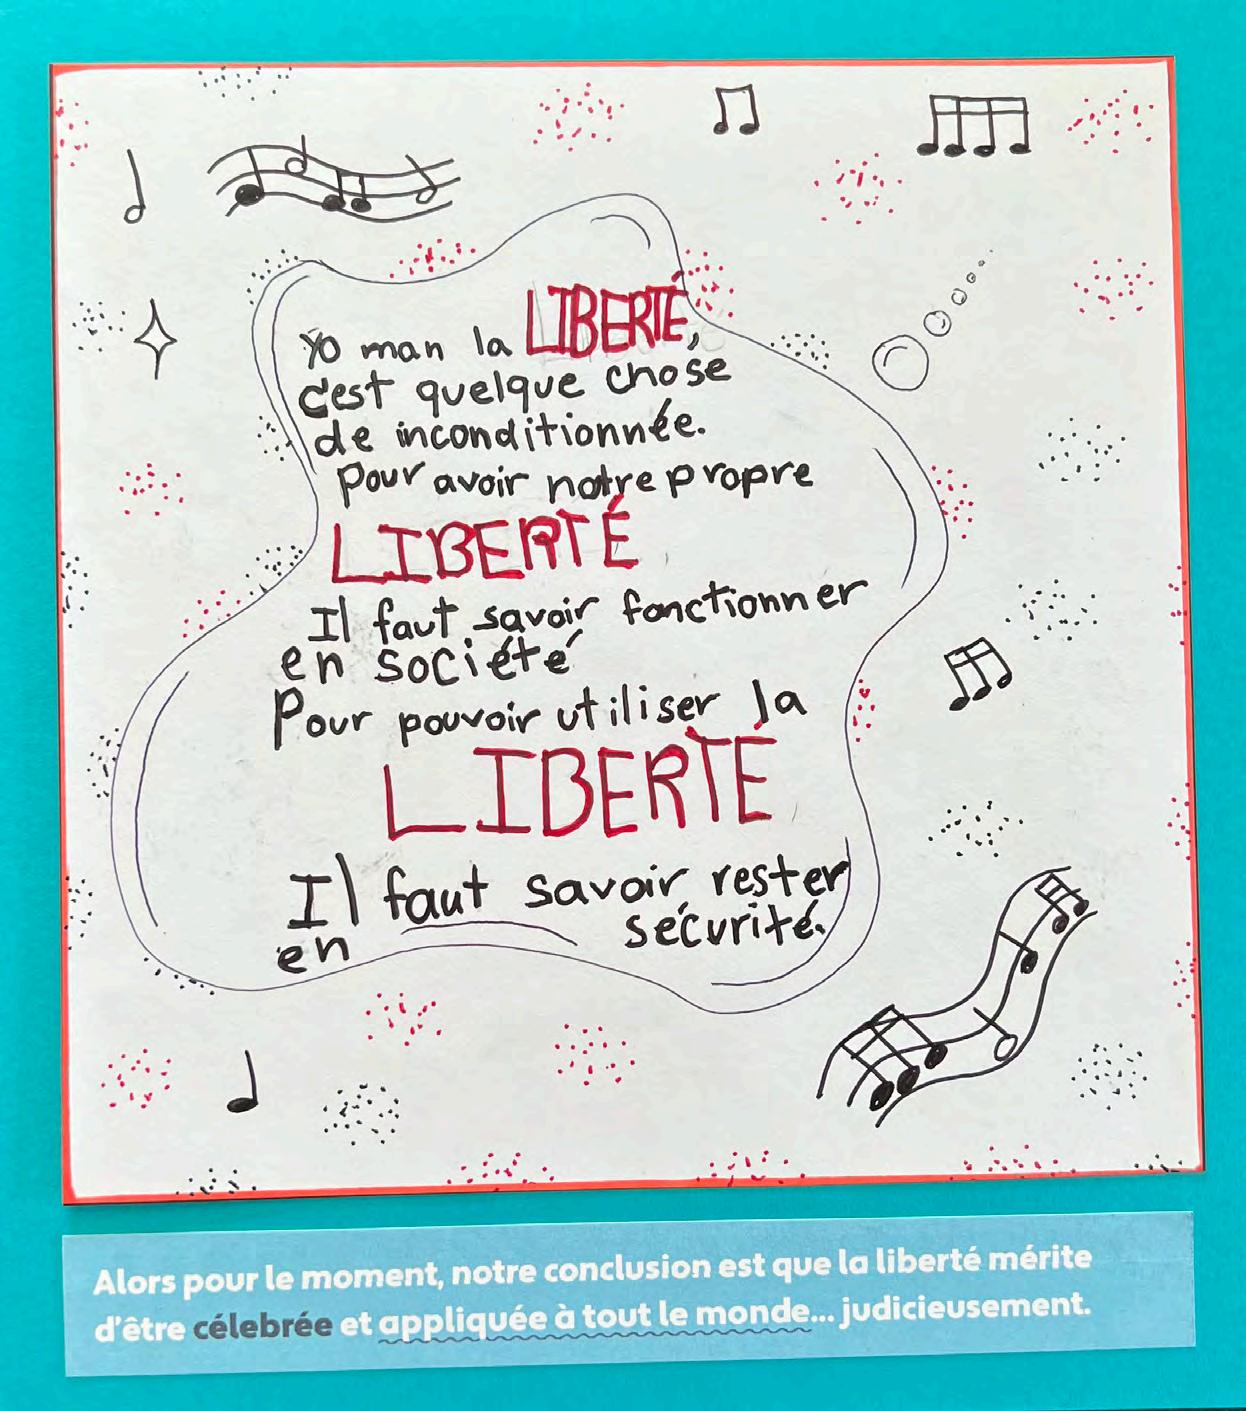 Yo man la LIBERTÉ,
c'est quelque chose
de inconditionnée.
Pour avoir notre propre
LIBERTÉ
Il faut savoir fonctionner
en société
Pour pouvoir utiliser la
LIBERTÉ
Il faut savoir rester
en sécurité.
Alors pour le moment, notre conclusion est que la liberté mérite
d'être célebrée et appliquée à tout le monde... judicieusement.